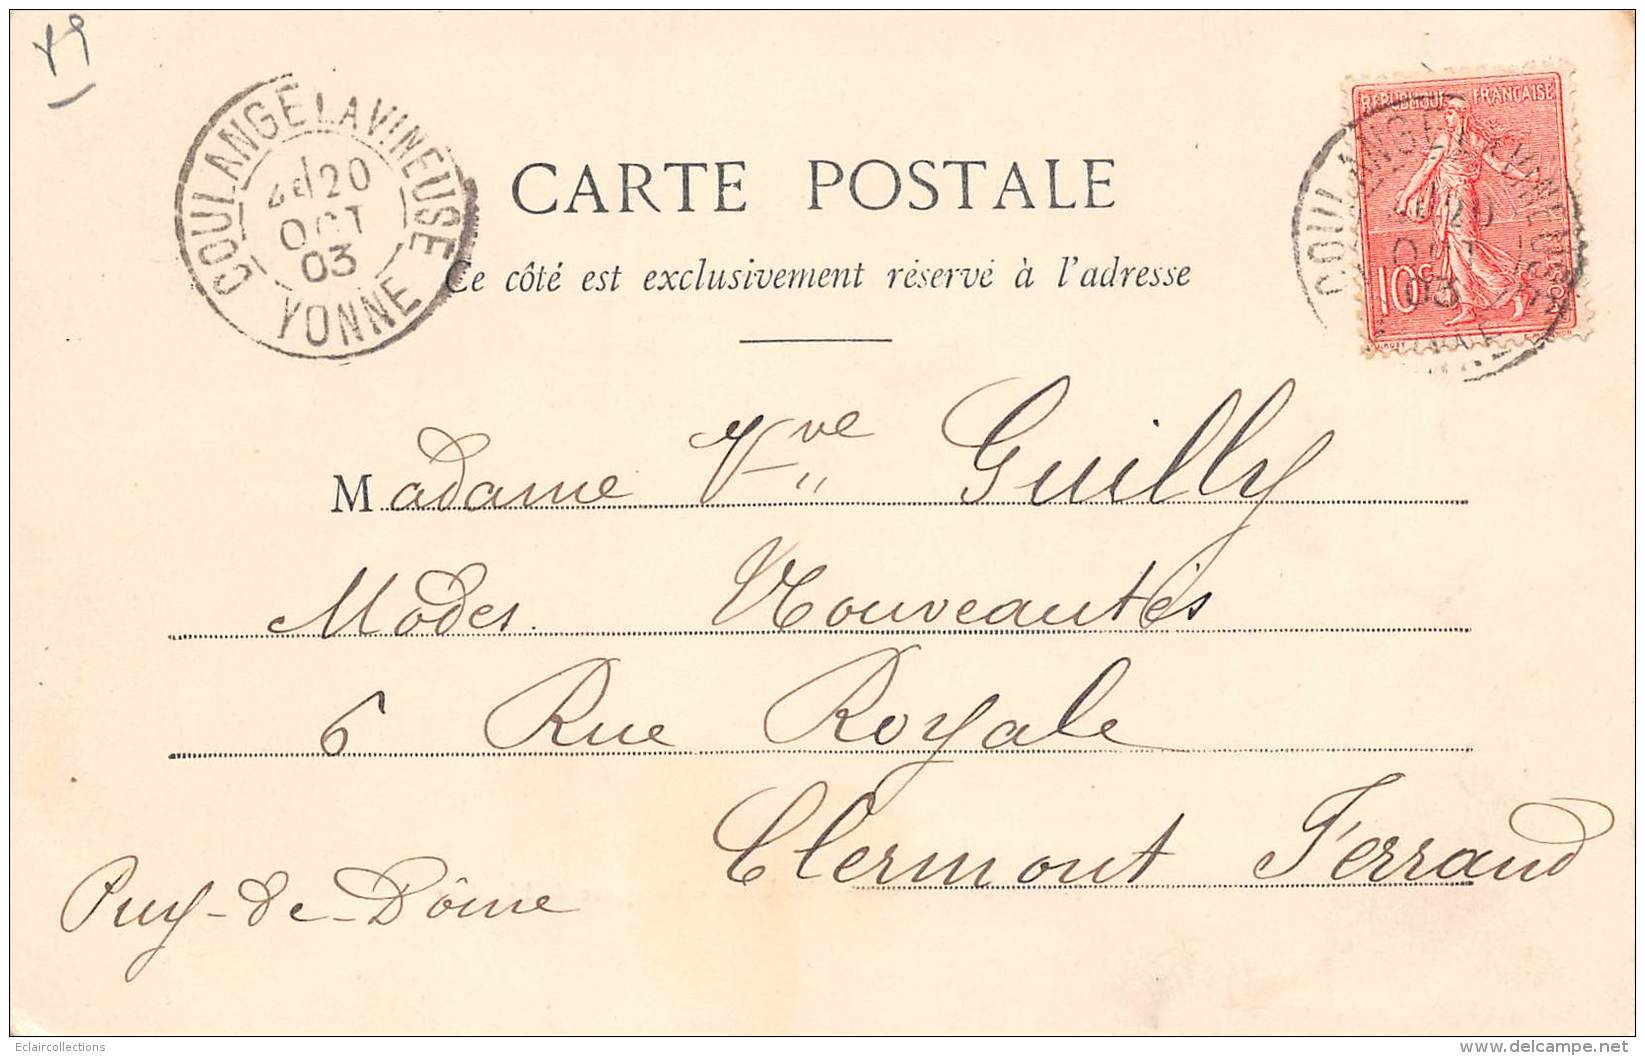 19
COULANGE LA VINEUSE
20
OCT
03
YONNE
REPUBLIQUE FRANCAISE
10c
CARTE POSTALE
Ce côté est exclusivement réservé à l'adresse
Madame Vve Guilly
Modes Nouveautés
6 Rue Royale
Clermont Ferrand
Puy-de-Dôme
Eclaircollections
delcampe.net